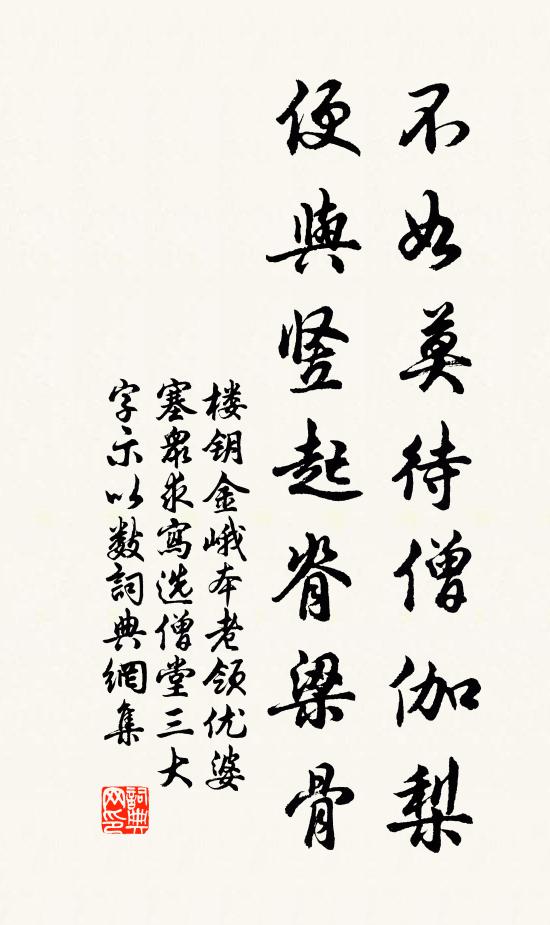 不如莫待僧伽梨
便與竖起脊梁骨
楼钥金峨本老领优婆
塞众求寫选僧堂三大
字示以数詞典網集
詞典网印